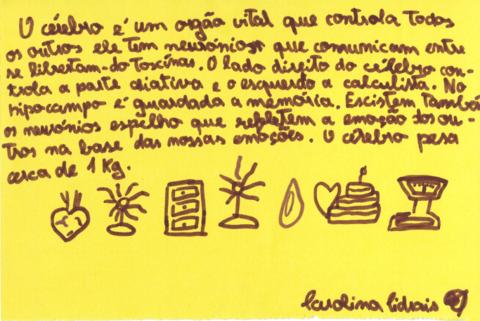 O cérebro é um orgão vital que controla todos
os outros ele tem neurónios que comunicam entre
se libertam-do toscinas. O lado direito do célebro con-
trola a parte criativa e o esquerdo a calculista. No
ripocampo é guardada a memória. Escistem também
os neurónios espelho que repletem a emoção dos ou-
tros na base das nossas emoções. O cérebro pesa
cerca de 1 Kg.
Carolina